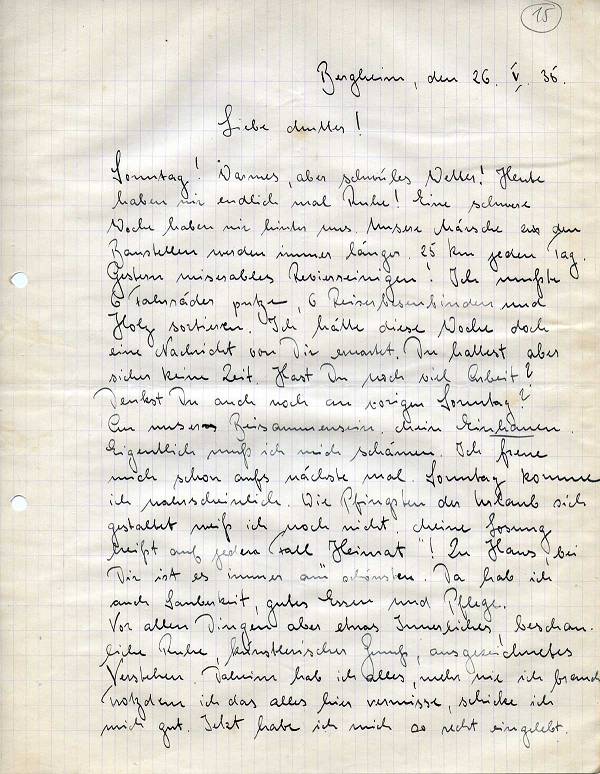 15
Bergheim, den 26. V. 36.
Liebe Mutter!
Sonntag! Warmes, aber schwüles Wetter! Heute
haben wir endlich mal Ruhe! Eine schwere
Woche haben wir hinter uns. Unsere Märsche zu den
Baustellen werden immer länger. 25 km jeden Tag.
Gestern miserables Revierreinigen! Ich mußte
6 Fahrräder putze, 6 Reiserbesenbinden und
Holz sortieren. Ich hätte diese Woche doch
eine Nachricht von Dir erwartet. Du hattest aber
sicher keine Zeit. Hast Du noch viel Arbeit?
Denkst Du auch noch an vorigen Sonntag?
An unser Beisammensein, mein Einhauen.
Eigentlich muß ich mich schämen. Ich freue
mich schon aufs nächste mal. Sonntag komme
ich wahrscheinlich. Wie Pfingsten der Urlaub sich
gestaltet weiß ich noch nicht. Meine Losung
heißt auf jeden Fall "Heimat"! Zu Haus, bei
Dir ist es immer am schönsten. Da hab ich
auch Sauberkeit, gutes Essen und Pflege.
Vor allen Dingen aber etwas Innerliches, beschau-
liche Ruhe, künstlerischer Genuß, ausgezeichnetes
Verstehen. Daheim hab ich alles, mehr wie ich brauch
Trotzdem ich das alles hier vermisse, schicke ich
mich gut. Jetzt habe ich mich so recht eingelebt.